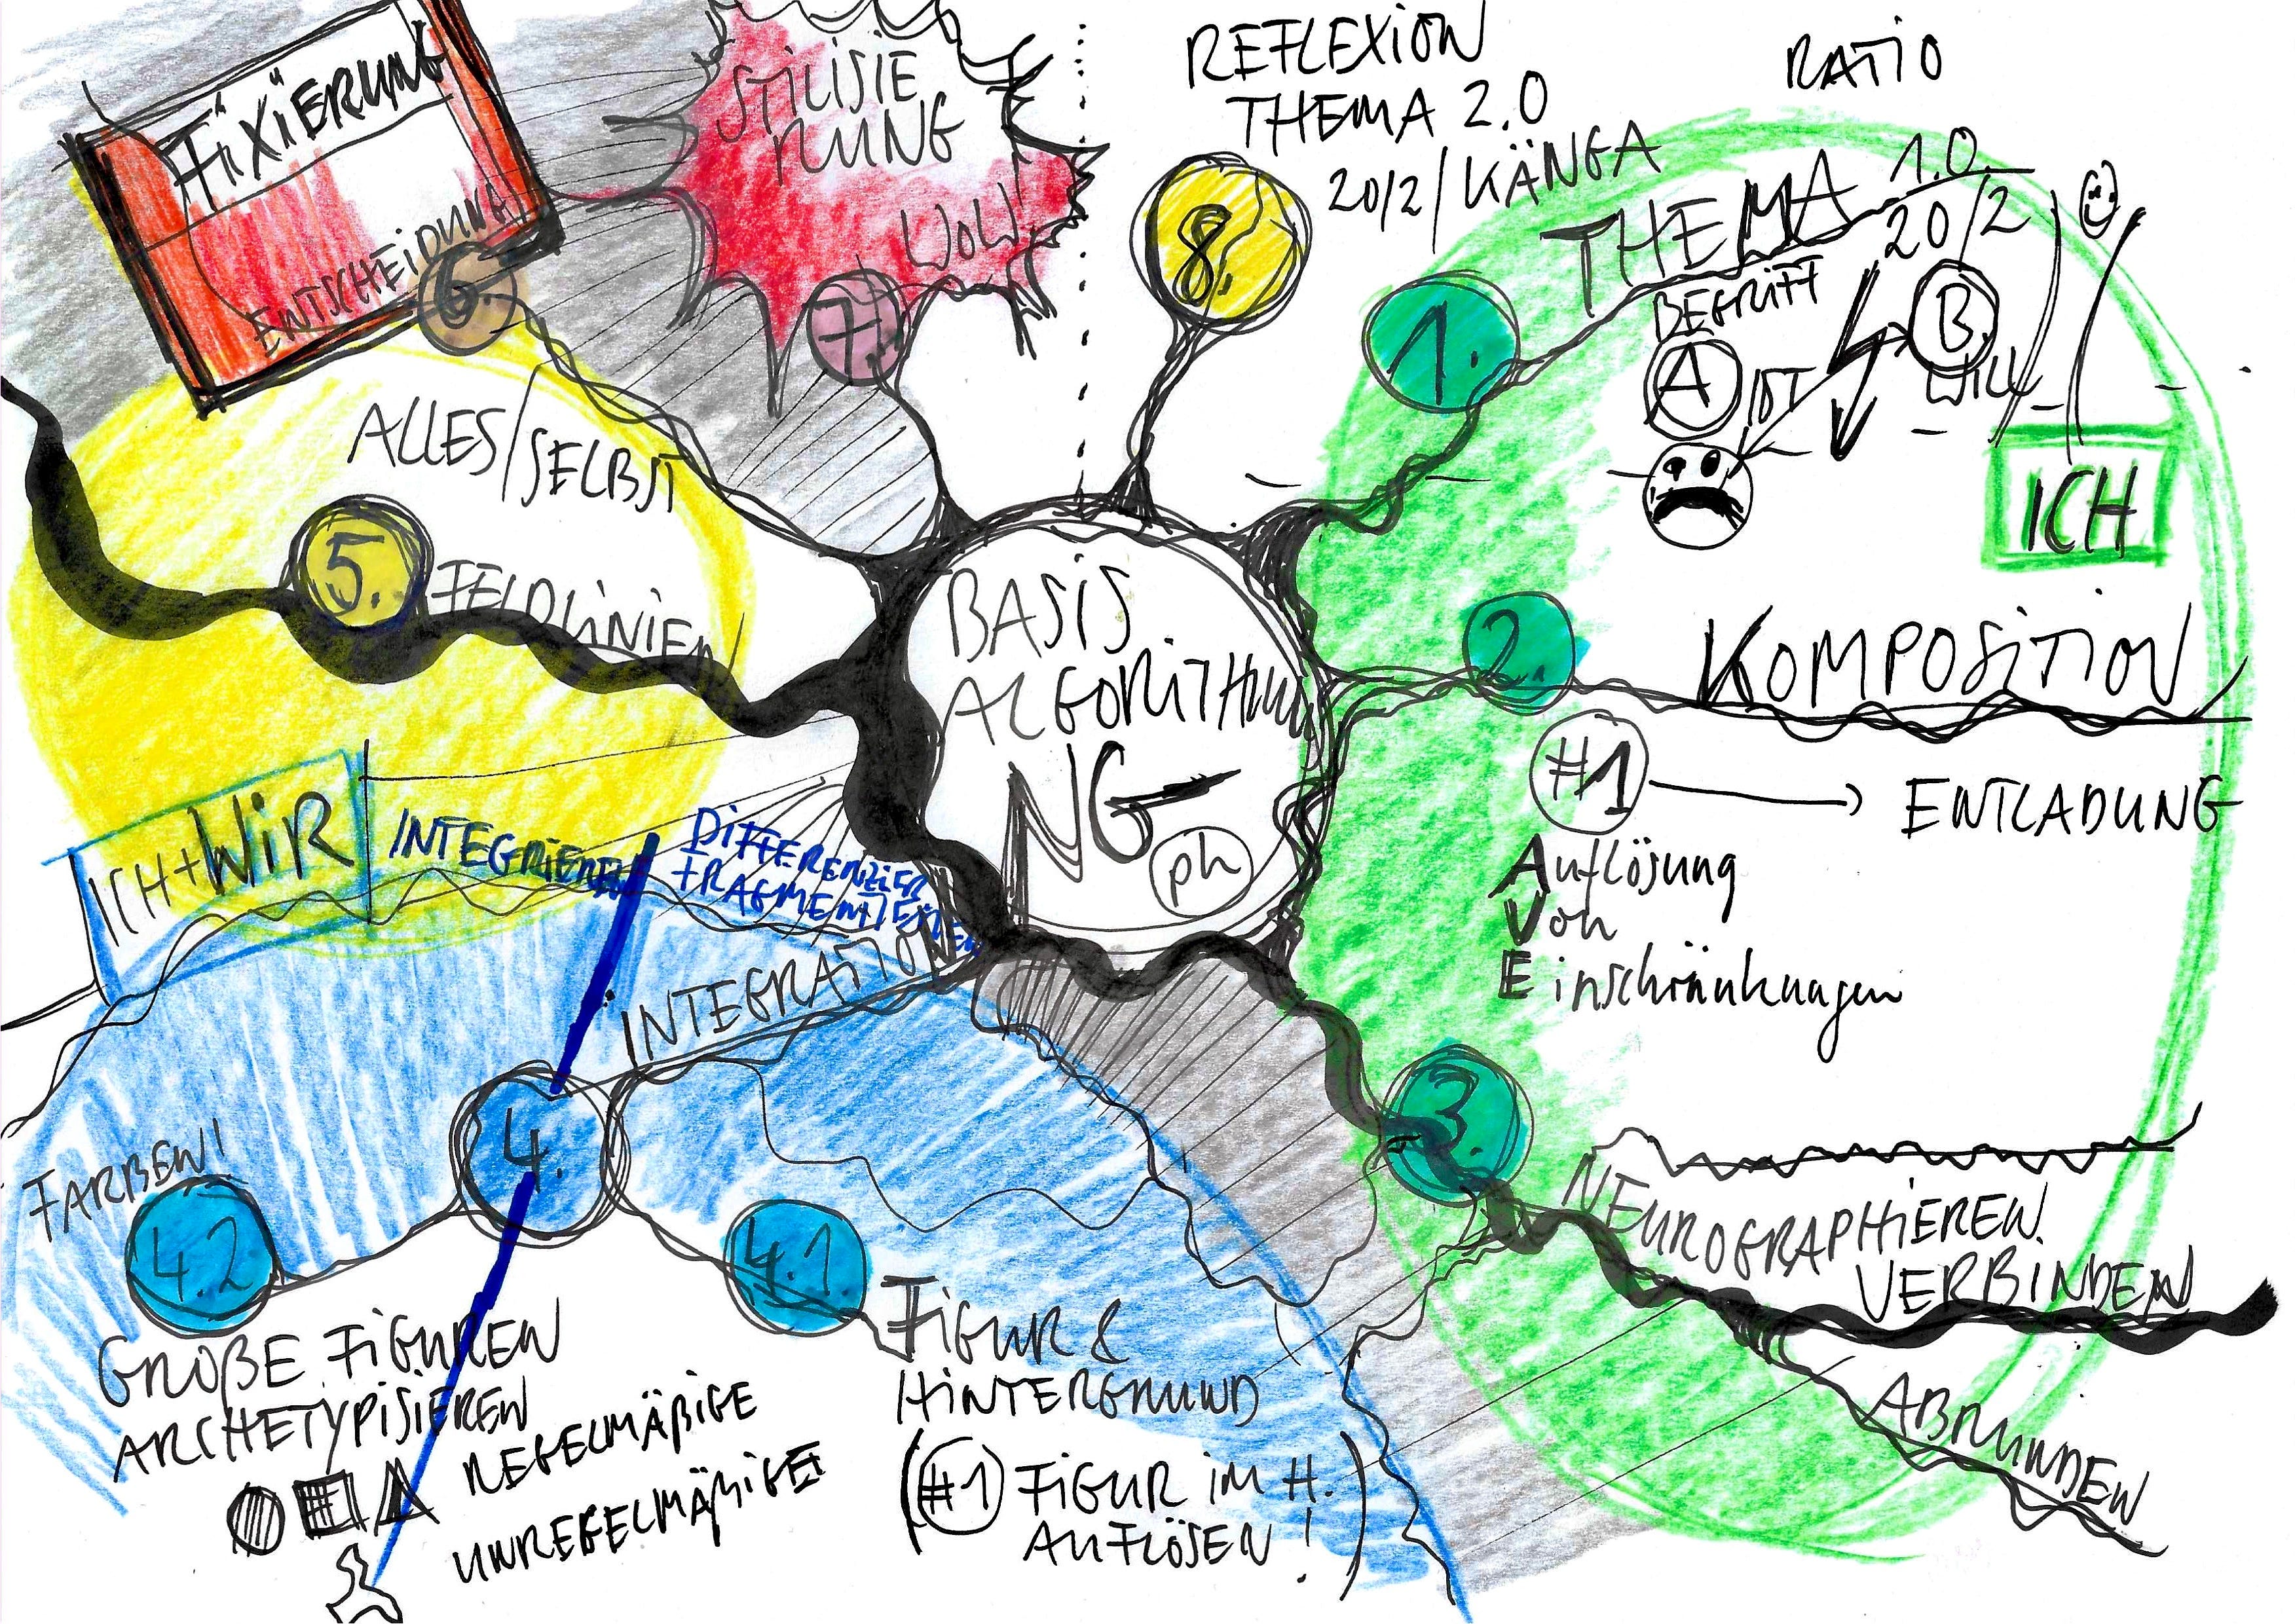 BASIS
ALGORITHMUS
NG-
ph
1.
RATIO
THEMA 1.0
20/2
BEGRIFF
A
IST
B
WILL
ICH
2.
KOMPOSITION
#1
ENTLADUNG
Auflösung
Von
Einschränkungen
3.
NEUROGRAPHIEREN
VERBINDEN
ABRUNDEN
4.
INTEGRATION
ICH+WIR
INTEGRIEREN
DIFFERENZIER
4.1
FIGUR &
HINTERGRUND
(#1) FIGUR IM H.
AUFLÖSEN!
4.2
FARBEN!
GROßE FIGUREN
ARCHETYPISIEREN
REGELMÄßIGE
UNREGELMÄßIGE
5.
ALLES/SELBST
FELDLINIEN
6.
FIXIERUNG
ENTSCHEIDUNG
7.
STILISIE
RUNG
WOW!
8.
REFLEXION
THEMA 2.0
20/2/KÄNGA